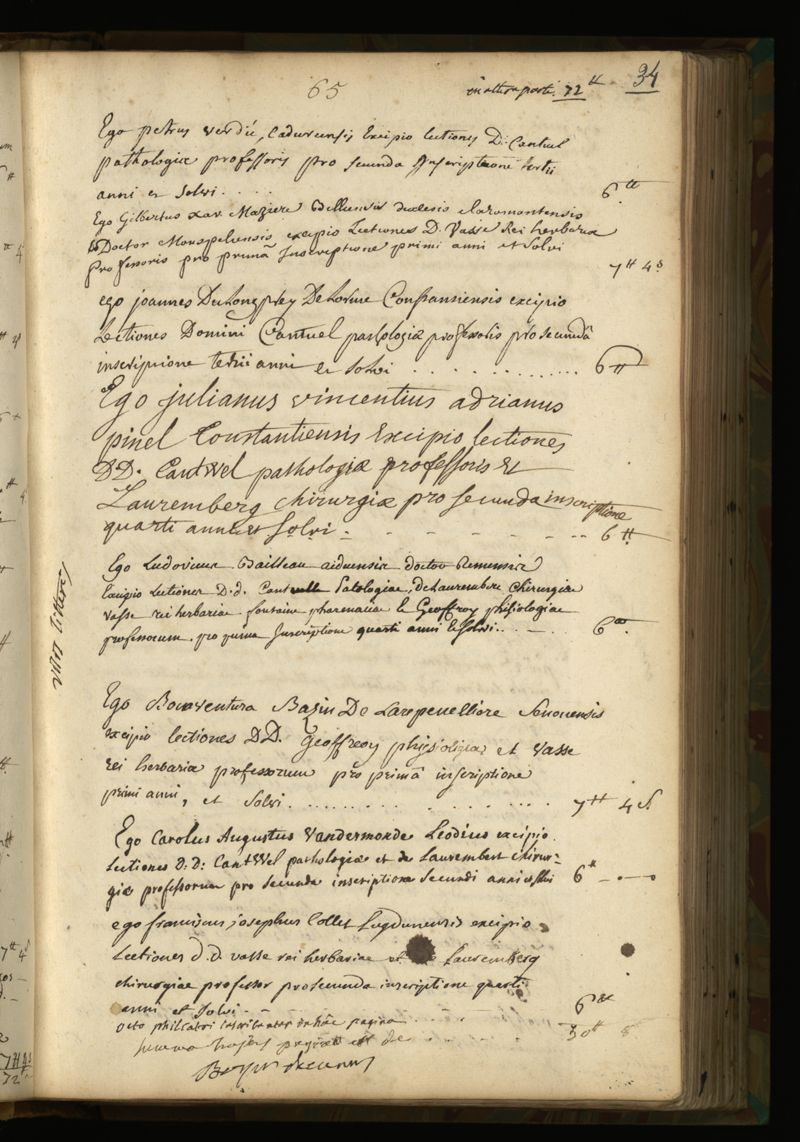 65
in altera parte 72 ₶
34
Ego petrus verdié, Cadurcensis Excipio lectiones D. Cantuel
pathologiæ professoris pro secunda inscriptione tertii
anni et solvi . . . . 6 ₶
Ego Gilbertus xav. Maziere diecesis claromontensis
Doctor Monspeliensis excipio Lectiones D. Vasse Rei herbariæ
professoris pro primâ Inscriptione primi anni et solvi
7 ₶ 4 s
ego joannes De Lorme Constansiensis excipio
Lectiones Domini Cantuel pathologiæ professoris pro secundâ
inscriptione tertii anni et solvi . . . . . . . . . . . . 6 ₶
Ego julianus vincentius adrianus
pinel Constantiensis Excipio lectiones
DD. Cantwel pathologiæ professoris Et
Lauremberg chirurgiæ pro secunda inscriptione
quarti anni et solvi . - - - - - - - 6 ₶
Ego Ludovicus Bailleau doctor Remensis
Excipio Lectiones D.d. Patologiae, de Laurembert Chirurgiæ
Vasse rei herbariæ fontaine pharmaciæ & Geoffroy phisiologiae
professorum pro prima Inscriptione quarti anni Et solvi . . - . 6 ₶
vltos litteras
Ego Bonaventura Basin De Larpenelliere Senonensis
excipio lectiones DD. Geoffreoy phisiologiæ et Vasse
rei herbariæ professorum pro primâ inscriptione
primi anni, et solvi . . . . . . . . . . . . 7 ₶ 4 s.
Ego Carolus Augustus Vandermonde Leodius excipio
Lectiones D: D: Cantwel pathologiæ et de Laurembert chirur-
giæ professorum pro secunda inscriptione secundi anni et solvi 6 ₶
ego franciscus josephus Collet Lugdunensis excipio
Lectiones d.d. vasse rei herbariae et Lauremberg
chirurgiae professor pro secunda inscriptione quarti
anni et solvi . - - - - 6 ₶
octo philiatri inscribuntur in hâc pagina . . . .
summa hujus paginæ est de . . . . . 50 ₶ 8
decanus